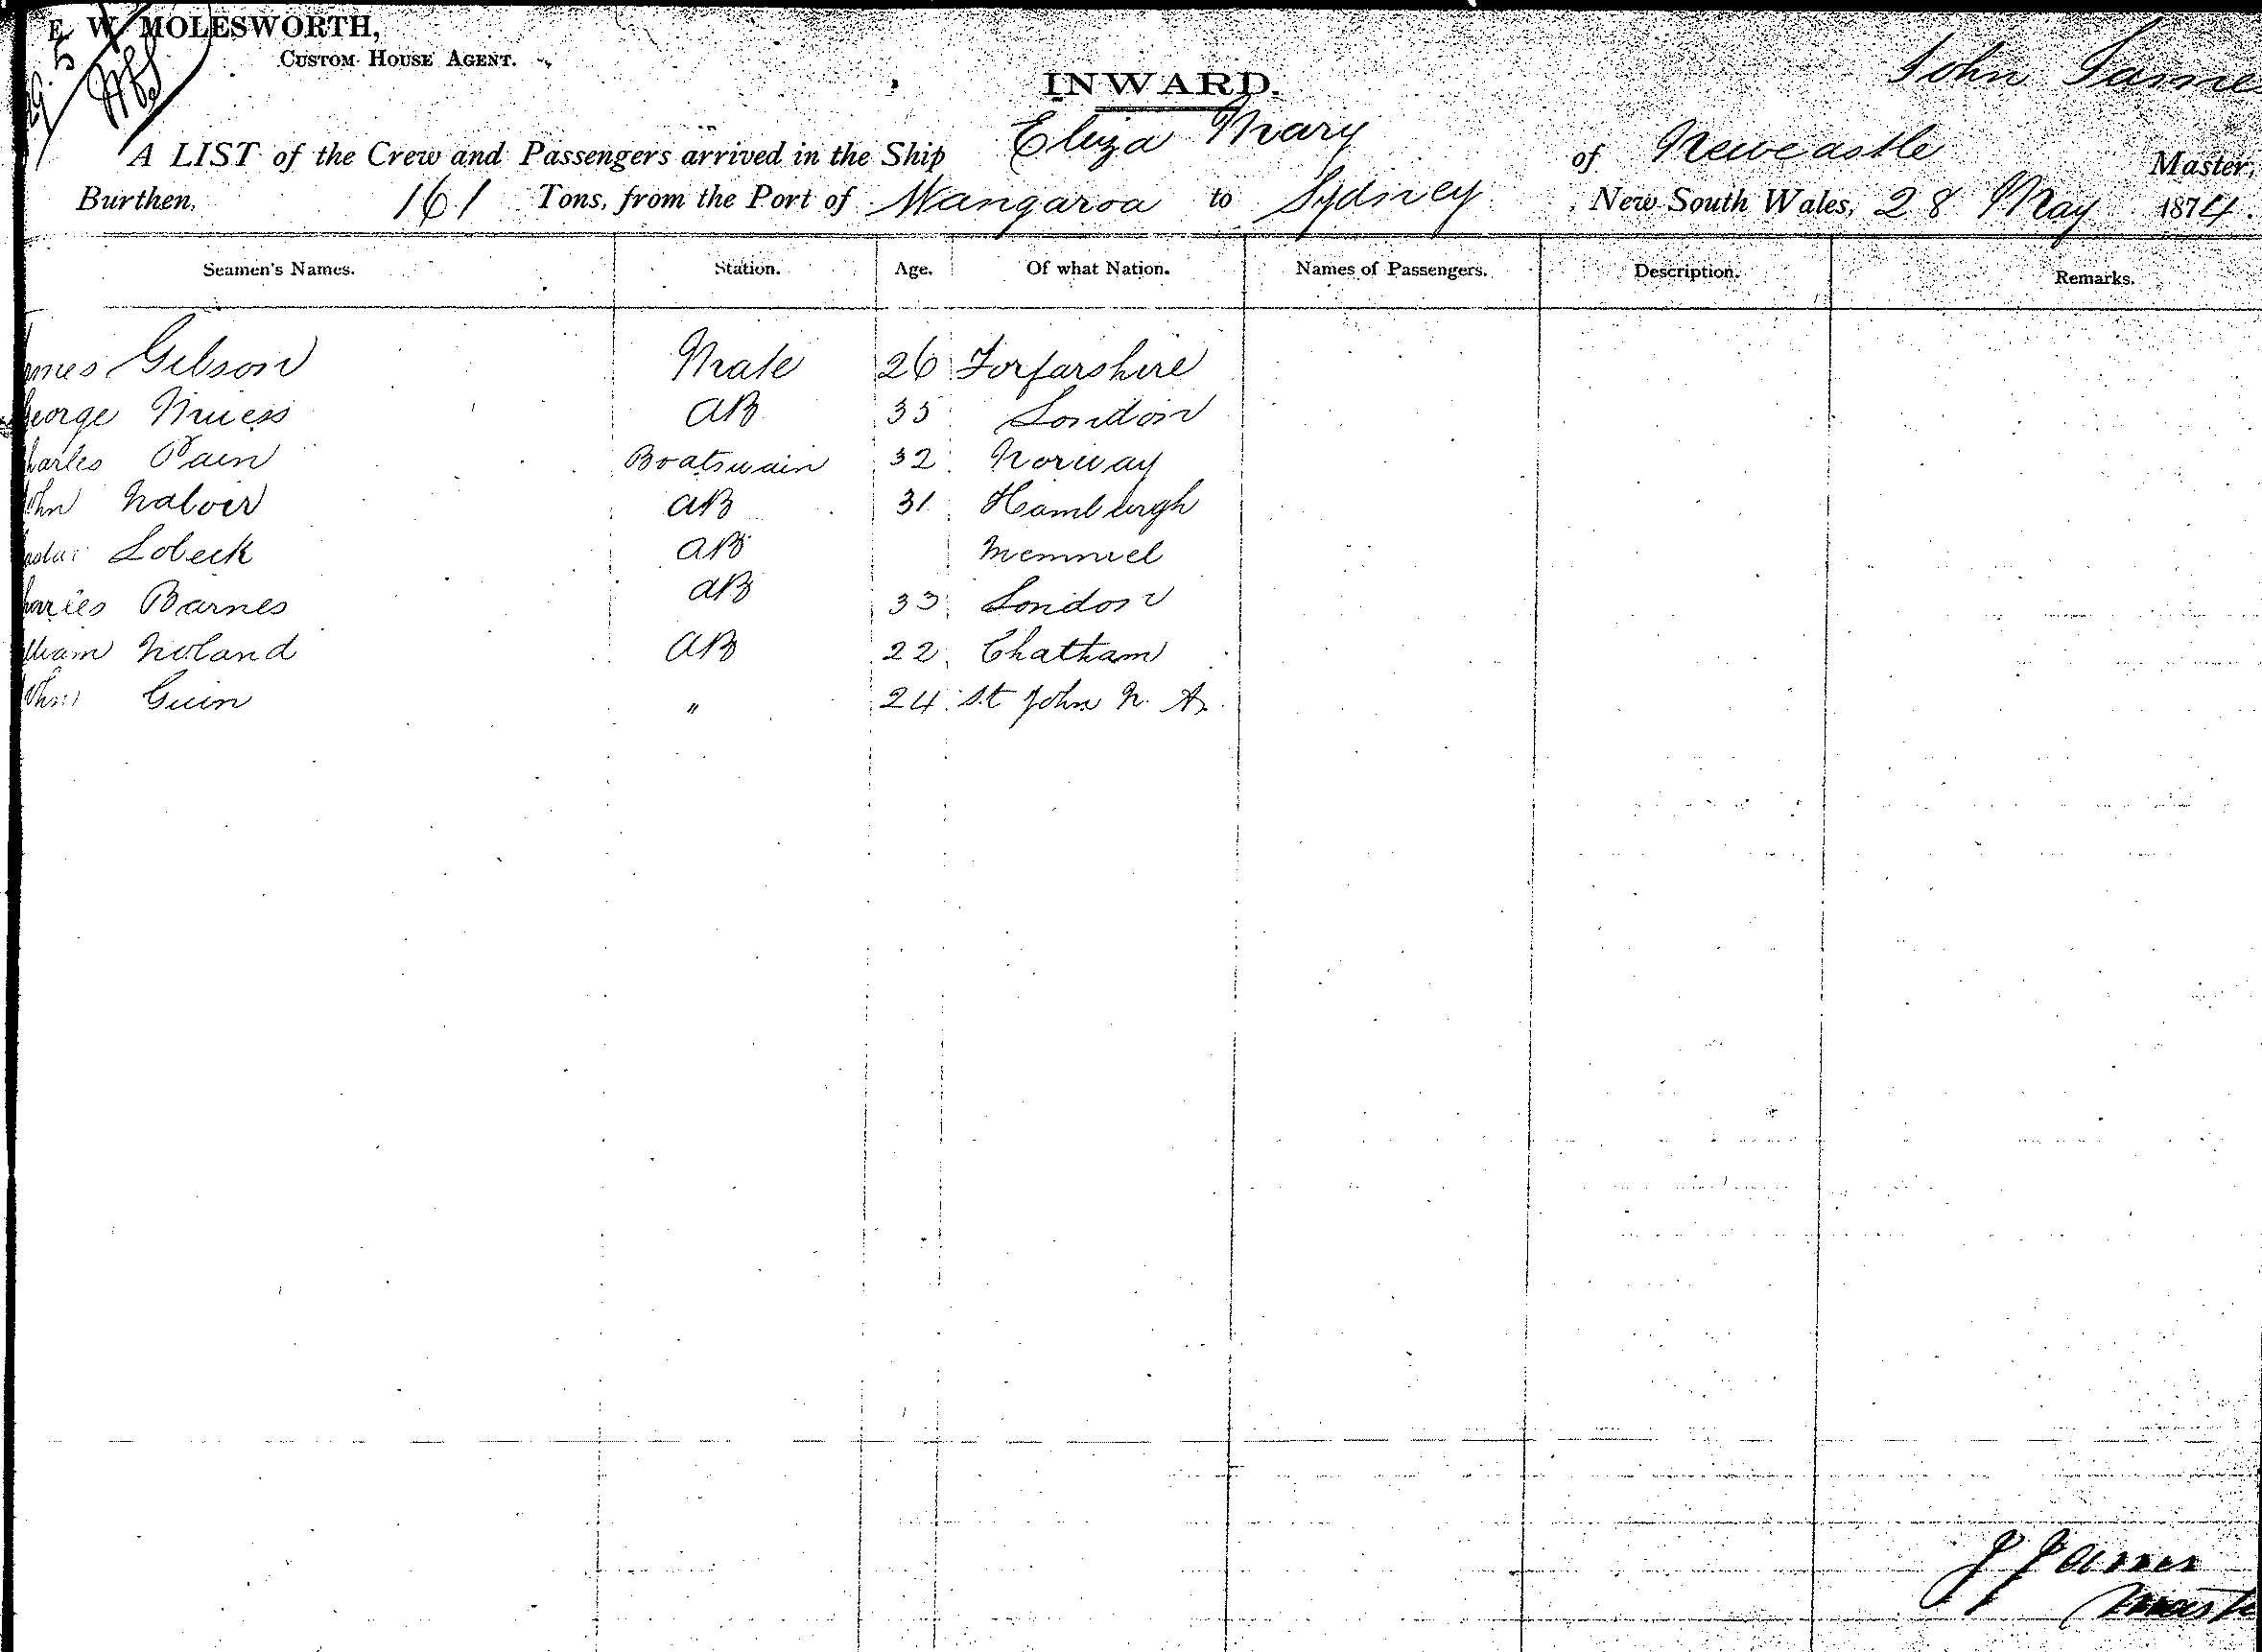 E. W. MOLESWORTH,
CUSTOM HOUSE AGENT.
29.5
INWARD.
John James
A LIST of the Crew and Passengers arrived in the Ship Eliza Mary of Newcastle Master,
Burthen, 161 Tons, from the Port of Wangaroa to Sydney, New South Wales, 28 May 1874.
Seamen's Names. Station. Age. Of what Nation. Names of Passengers. Description. Remarks.
ames Gibson Mate 26 Forfarshire
George AB 35 London
harles Pain Boatswain 32 Norway
John AB 31 Hamburgh
Lobeck AB Memmel
harles Barnes AB 33 London
illiam Noland AB 22 Chatham
John Guin " 24 St John N.
J James
Maste